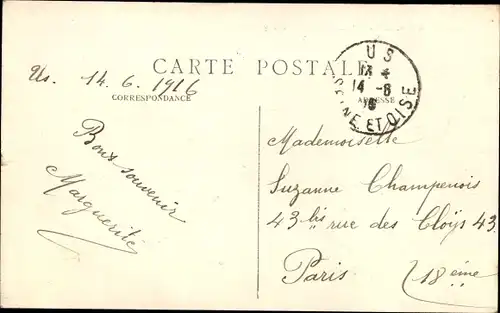 CARTE POSTALE
US
13 *
14 - 6
16
SEINE ET OISE
Us. 14. 6. 1916
CORRESPONDANCE
ADRESSE
Bons souvenir
Marguerite
Mademoiselle
Suzanne Champenois
43 bis rue des Cloÿs 43.
Paris (18 ème